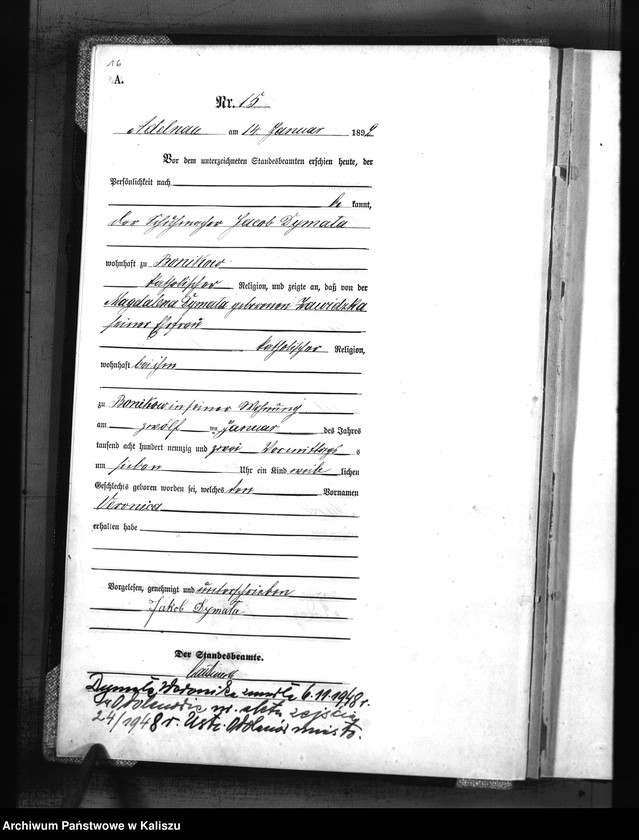 16
A.
Nr. 15.
Adelnau am 14. Januar 1892
Vor dem unterzeichneten Standesbeamten erschien heute, der
Persönlichkeit nach
be kannt,
der Schuhmacher Jacob Dymała
wohnhaft zu Bonikow
katholischer Religion, und zeigte an, daß von der
Magdalena Dymała geborenen Zawidzka
seiner Ehefrau
katholischer Religion,
wohnhaft bei ihm
zu Bonikow in seiner Wohnung
am zwölf ten Januar des Jahres
tausend acht hundert neunzig und zwei Vormittags
um sieben Uhr ein Kind weib lichen
Geschlechts geboren worden sei, welches den Vornamen
Veronica
erhalten habe
Vorgelesen, genehmigt und unterschrieben
Jakob Dymała
Der Standesbeamte.
Dymała Weronika zmarła 6.11.1948 r.
w Odolanowie nr. aktu zejścia
24/1948 r. Usc. Odolanów miasto.
Archiwum Państwowe w Kaliszu